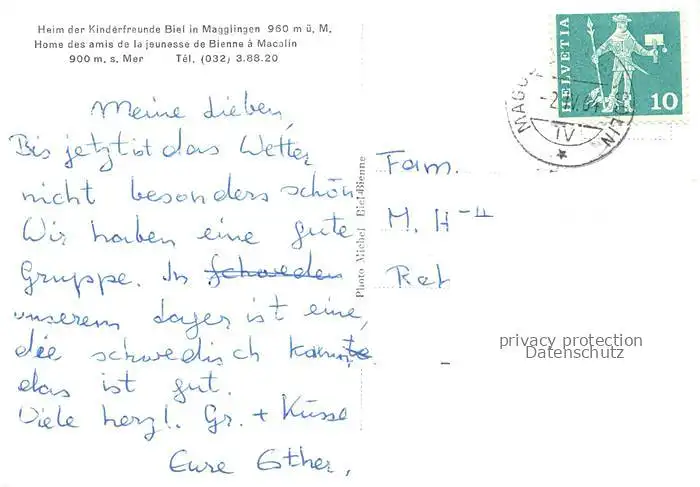 Heim der Kinderfreunde Biel in Magglingen 960 m ü. M.
Home des amis de la jeunesse de Bienne à Macolin
900 m. s. Mer Tél. (032) 3.88.20
HELVETIA
10
IV
Meine Lieben,
Bis jetzt ist das Wetter
nicht besonders schön.
Wir haben eine gute
Gruppe. In schweden
unserem Lager ist eine,
die schwedisch kannte
das ist gut.
Viele herzl. Gr. + Küsse
Eure Esther,
Photo Michel Biel-Bienne
Fam.
M. H
privacy protection
Datenschutz